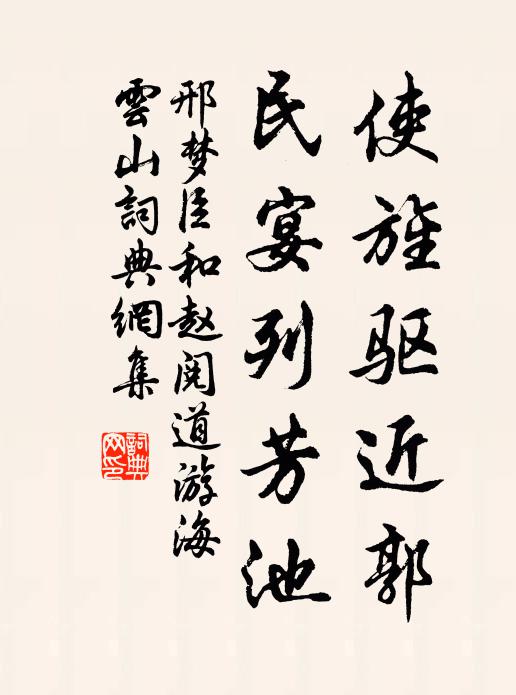 使旌驱近郭
民宴列芳池
邢梦臣和赵阅道游海
雲山詞典網集
詞典网印